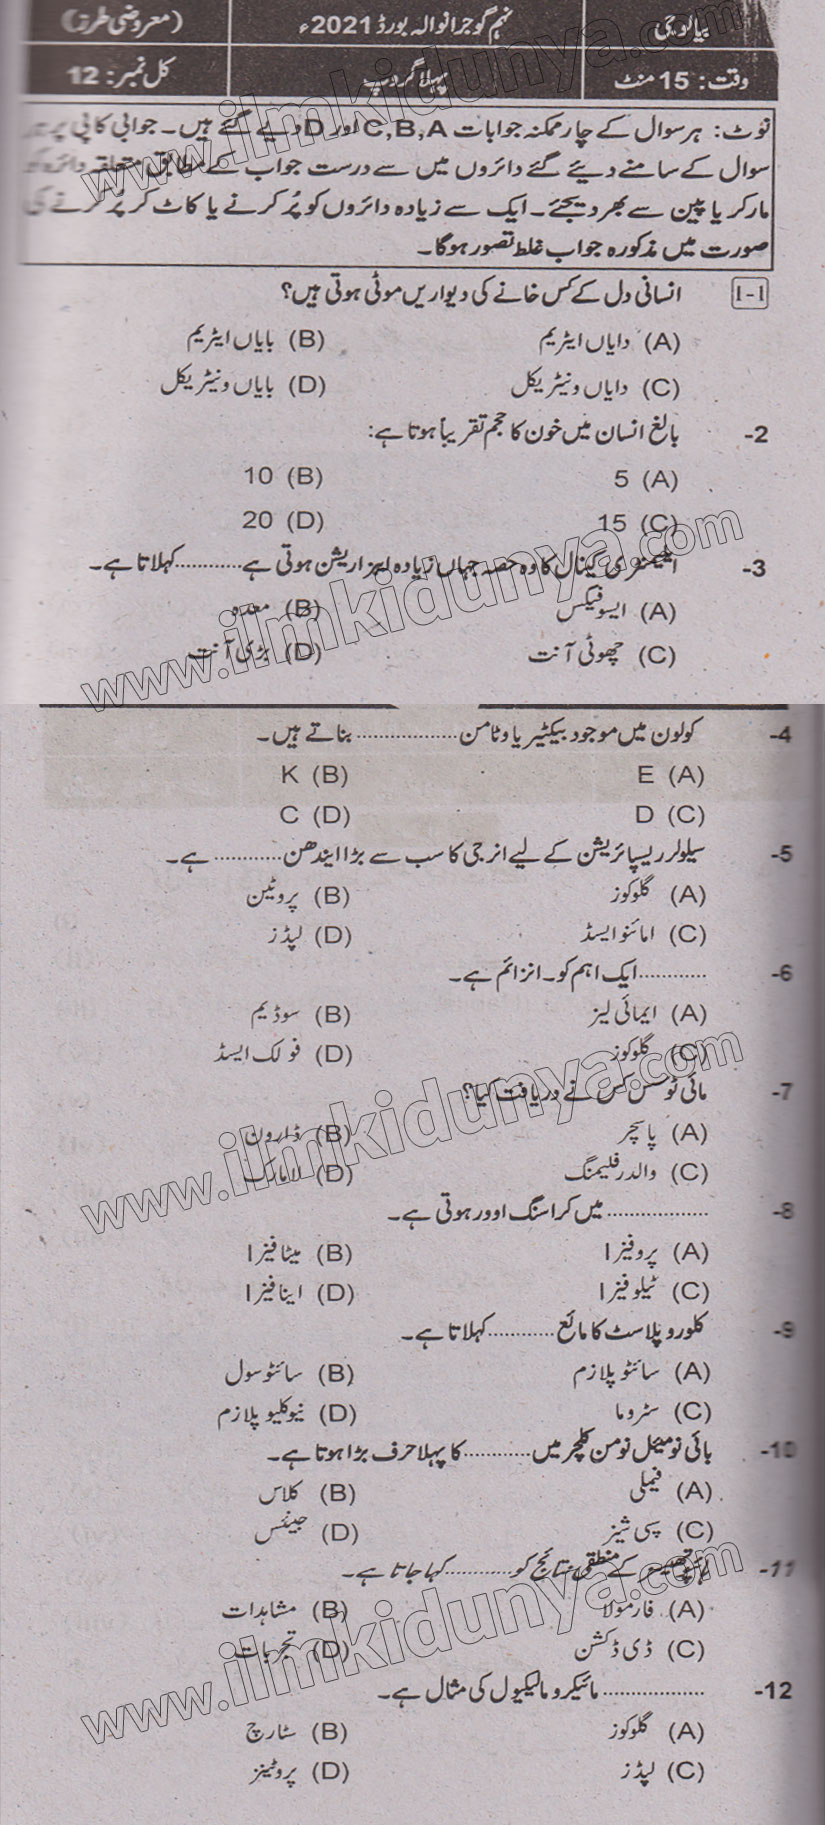 بیالوجی
نہم گوجرانوالہ بورڈ 2021ء
(معروضی طرز)
وقت: 15 منٹ
پہلا گروپ
کل نمبر: 12
نوٹ: ہر سوال کے چار ممکنہ جوابات C,B,A اور D دیے گئے ہیں۔ جوابی کاپی پر ہر
سوال کے سامنے دیئے گئے دائروں میں سے درست جواب کے مطابق متعلقہ دائرہ کو
مارکر یا پین سے بھر دیجئے۔ ایک سے زیادہ دائروں کو پُر کرنے یا کاٹ کر پُر کرنے کی
صورت میں مذکورہ جواب غلط تصور ہوگا۔
1-1 انسانی دل کے کس خانے کی دیواریں موٹی ہوتی ہیں؟
(A) دایاں ایٹریم (B) بایاں ایٹریم
(C) دایاں ونیٹریکل (D) بایاں ونیٹریکل
2- بالغ انسان میں خون کا حجم تقریباً ہوتا ہے:
(A) 5 (B) 10
(C) 15 (D) 20
3- ایلیمنٹری کینال کا وہ حصہ جہاں زیادہ ابزارپشن ہوتی ہے............کہلاتا ہے۔
(A) ایسوفیگس (B) معدہ
(C) چھوٹی آنت (D) بڑی آنت
4- کولون میں موجود بیکٹیریا وٹامن .................. بناتے ہیں۔
(A) E (B) K
(C) D (D) C
5- سیلولر ریسپائریشن کے لیے انرجی کا سب سے بڑا ایندھن ............ ہے۔
(A) گلوکوز (B) پروٹین
(C) امائنو ایسڈ (D) لپڈز
6- ............ایک اہم کو۔انزائم ہے۔
(A) ایمائی لیز (B) سوڈیم
(C) گلوکوز (D) فولک ایسڈ
7- مائی ٹوسس کس نے دریافت کیا؟
(A) پاسچر (B) ڈارون
(C) والدر فلیمنگ (D) لامارک
8- .................. میں کراسنگ اوور ہوتی ہے۔
(A) پروفیز I (B) میٹافیز I
(C) ٹیلوفیز I (D) اینافیز I
9- کلوروپلاسٹ کا مائع............کہلاتا ہے۔
(A) سائٹوپلازم (B) سائٹوسول
(C) سٹروما (D) نیوکلیوپلازم
10- بائی نومیئل نومن کلچر میں............کا پہلا حرف بڑا ہوتا ہے۔
(A) فیملی (B) کلاس
(C) سپی شیز (D) جینئس
11- ہائپوتھیسز کے منطقی نتائج کو............کہا جاتا ہے۔
(A) فارمولا (B) مشاہدات
(C) ڈی ڈکشن (D) تجربات
12- .................. مائیکرو مالیکیول کی مثال ہے۔
(A) گلوکوز (B) سٹارچ
(C) لپڈز (D) پروٹینز
www.ilmkidunya.com
www.ilmkidunya.com
www.ilmkidunya.com
www.ilmkidunya.com